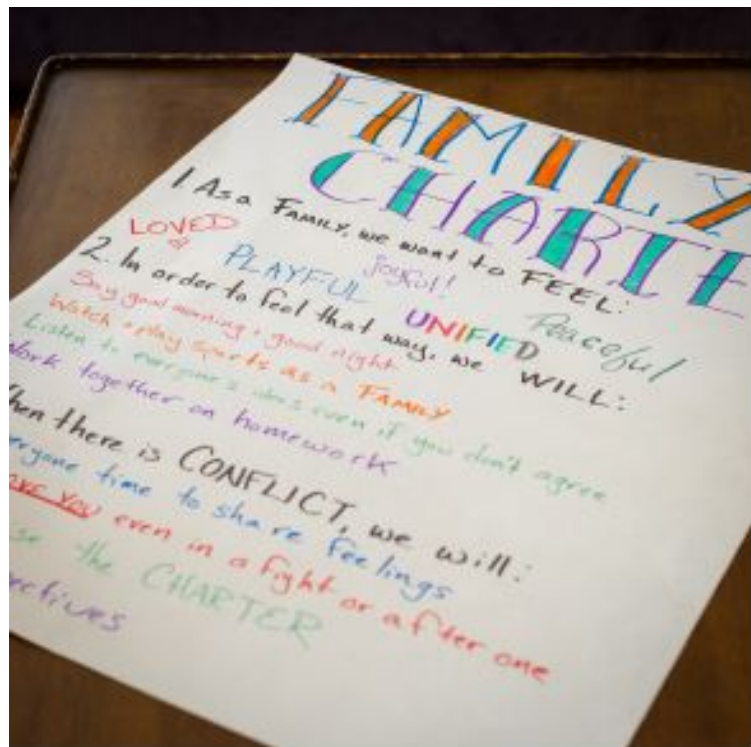 FAMILY
CHARTE
1. As a FAMILY, we want to FEEL:
LOVED PLAYFUL joyful! UNIFIED Peaceful
2. In order to feel that way, we WILL:
Say good morning + good night
Watch + play sports as a FAMILY
Listen to everyone's ideas even if you don't agree
work together on homework
hen there is CONFLICT, we will:
eryone time to share feelings
ove you even in a fight or after one
se the CHARTER
ectives